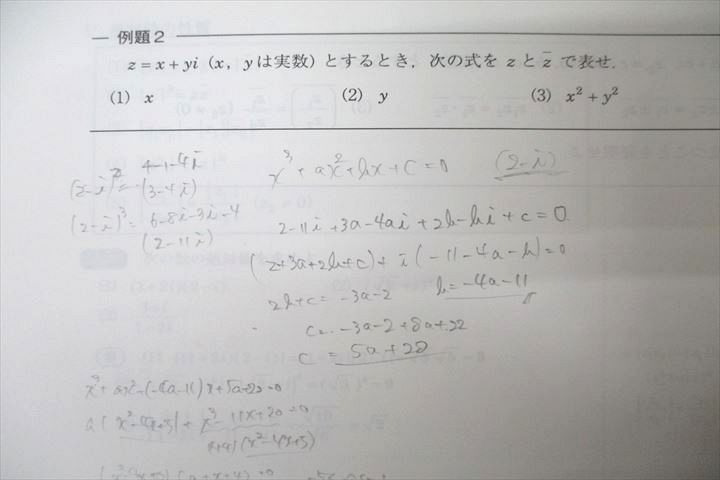 例題2
z=x+yi (x, yは実数) とするとき, 次の式を z と z̄ で表せ.
(1) x (2) y (3) x²+y²
4-1-4i
(2-i)²= (3-4i)
x³+ax²+bx+c=0 (2-i)
(2-i)³= 6-8i-3i-4
(2-11i)
2-11i+3a-4ai+2b-bi+c=0
(2+3a+2b+c)+i(-11-4a-b)=0
2b+c=-3a-2 b=-4a-11
c=-3a-2+8a+22
c=5a+20
x³+ax²+(-4a-11)x+5a+20=0
a(x²-4x+5)+x³-11x+20=0
(x+4)(x²-4x+5)
(x²-4x+5)(a+x+4)=0